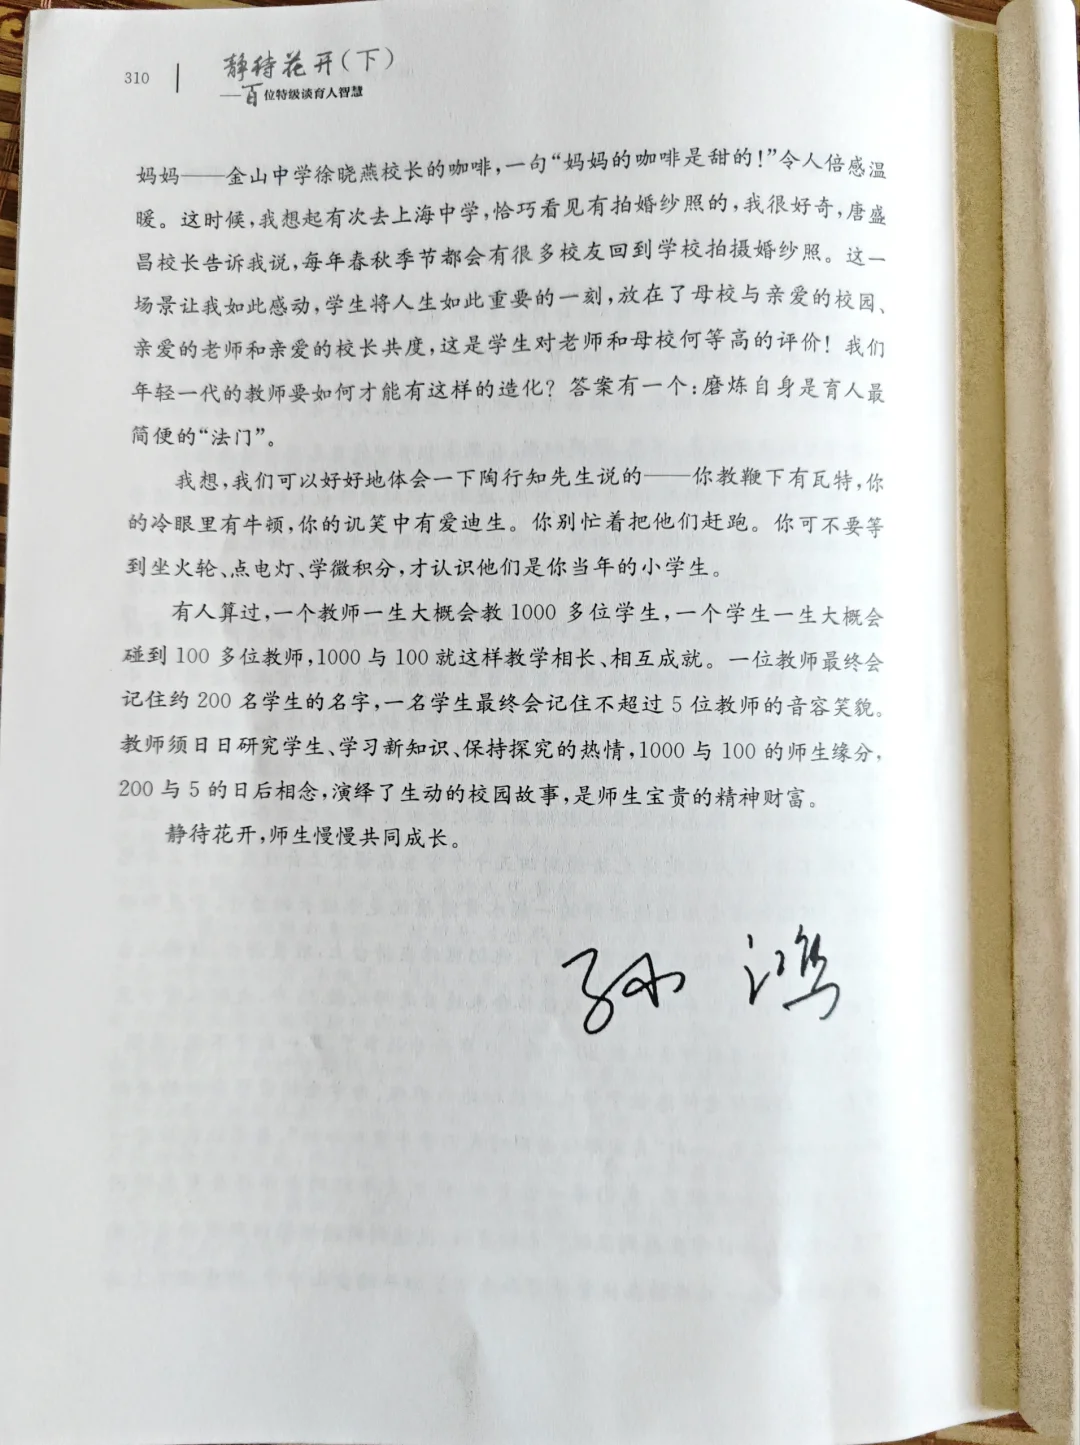 310
静待花开(下)
——百位特级谈育人智慧
妈妈——金山中学徐晓燕校长的咖啡,一句“妈妈的咖啡是甜的!”令人倍感温
暖。这时候,我想起有次去上海中学,恰巧看见有拍婚纱照的,我很好奇,唐盛
昌校长告诉我说,每年春秋季节都会有很多校友回到学校拍摄婚纱照。这一
场景让我如此感动,学生将人生如此重要的一刻,放在了母校与亲爱的校园、
亲爱的老师和亲爱的校长共度,这是学生对老师和母校何等高的评价! 我们
年轻一代的教师要如何才能有这样的造化? 答案有一个:磨炼自身是育人最
简便的“法门”。
我想,我们可以好好地体会一下陶行知先生说的——你教鞭下有瓦特,你
的冷眼里有牛顿,你的讥笑中有爱迪生。你别忙着把他们赶跑。你可不要等
到坐火轮、点电灯、学微积分,才认识他们是你当年的小学生。
有人算过,一个教师一生大概会教 1000 多位学生,一个学生一生大概会
碰到 100 多位教师,1000 与 100 就这样教学相长、相互成就。一位教师最终会
记住约 200 名学生的名字,一名学生最终会记住不超过 5 位教师的音容笑貌。
教师须日日研究学生、学习新知识、保持探究的热情,1000 与 100 的师生缘分,
200 与 5 的日后相念,演绎了生动的校园故事,是师生宝贵的精神财富。
静待花开,师生慢慢共同成长。
孙 鸿